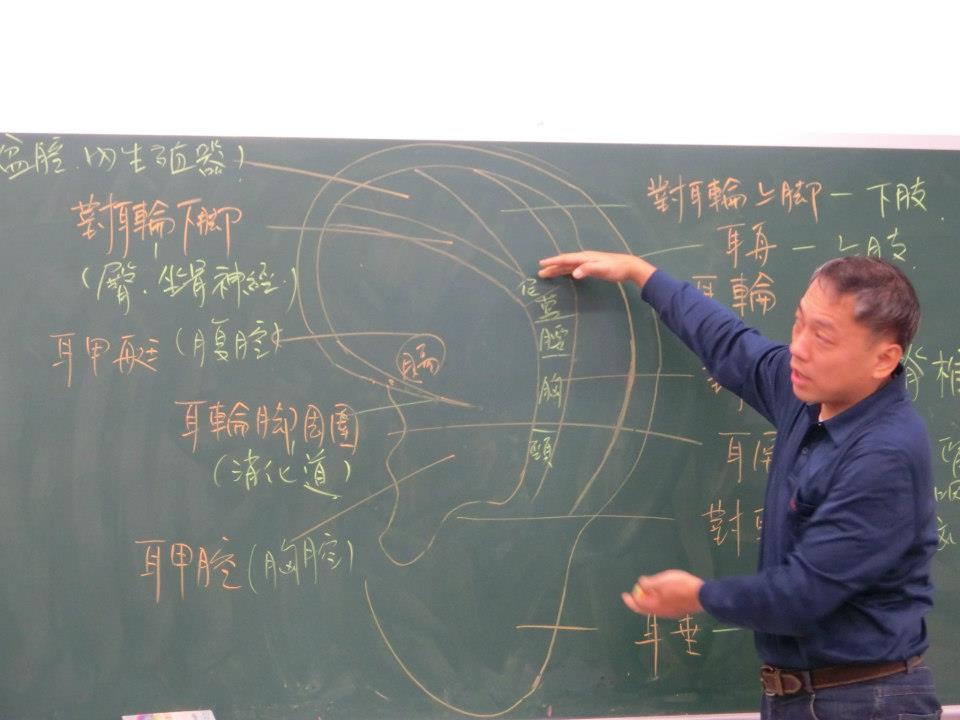 盆腔.內生殖器)
對耳輪下腳
(臀.坐骨神經)
耳甲艇 (腹腔)
耳輪腳周圍
(消化道)
耳甲腔 (胸腔)
膈
骶
腔
胸
頸
對耳輪上腳 — 下肢.
耳舟 — 上肢.
耳輪
脊椎
耳
對
耳垂 —